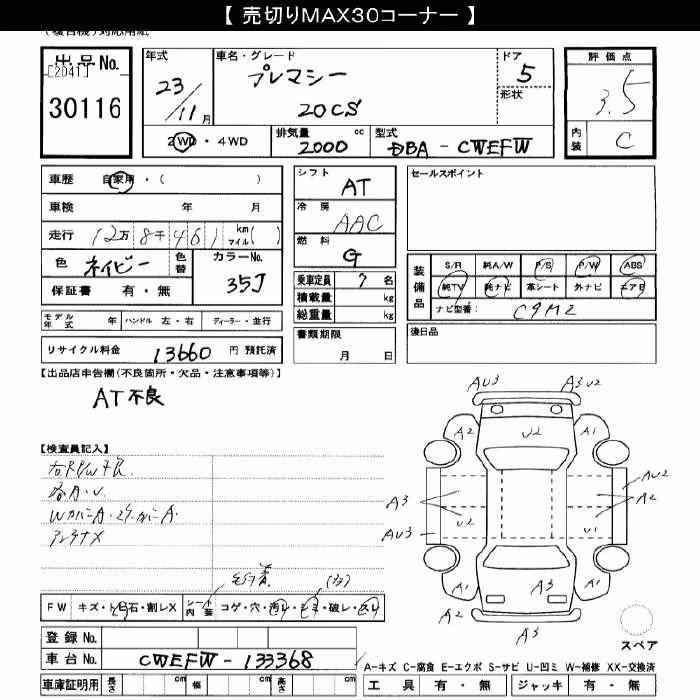 【 売切りMAX30コーナー 】
出品No.
[2041]
30116
年式
23/11月
車名・グレード
プレマシー
20CS
ドア
5
形状
評価点
3.5
内装
C
2WD・4WD
排気量 cc
2000
型式
DBA - CWEFW
車歴 自家用・( )
車検 年 月
走行 12万8千461 km マイル( )
色 ネイビー
色替
カラーNo.
35J
保証書 有・無
シフト
AT
冷房
AAC
燃料
G
乗車定員 7名
積載量 kg
総重量 kg
セールスポイント
装備品
S/R 純A/W P/S P/W ABS
純TV 純ナビ 革シート 外ナビ エアB
ナビ型番: C9M2
モデル年式 年 ハンドル 左・右 ディーラー・並行
書類期限
月 日
後日品
リサイクル料金 13660 円 預託済
【出品店申告欄(不良箇所・欠品・注意事項等)】
AT不良
【検査員記入】
右RP/W不良.
各A・U.
アンテナX
AU3 A3 U2
A2 U2 A1
AU2
A3 A2
AU3 U2 U1
A1 A3 A1
A2 A2
A3
スペア
FW キズ・トビ石・割レX
シート内装 コゲ・穴・汚レ・シミ・破レ・スレ
登録No.
車台No. CWEFW-133368
A-キズ C-腐食 E-エクボ S-サビ U-凹ミ W-補修 XX-交換済
車庫証明用 長さ cm 幅 cm 高さ cm
工具 有・無 ジャッキ 有・無